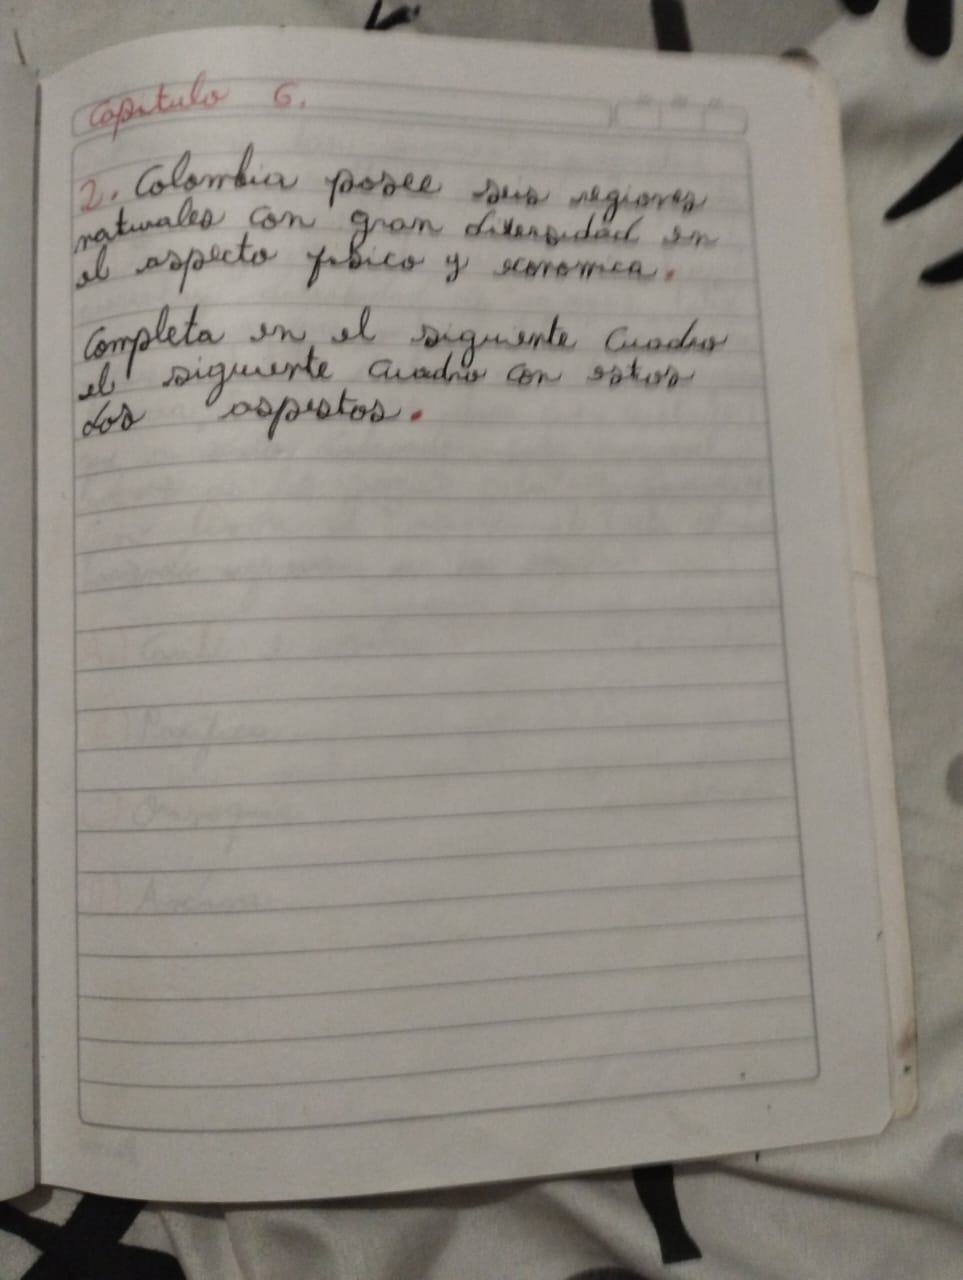 Capitulo 6.
2. Colombia posee seis regiones
naturales con gran diversidad en
el aspecto fisico y economica.
Completa en el siguiente Cuadro
el siguiente cuadro con estos
dos aspestos.
Pacifica
Orinoquia
Andina